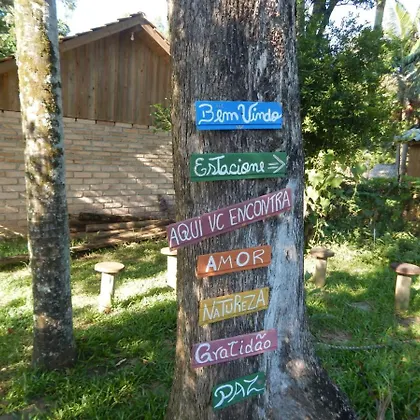 Bem Vindo
Estacione →
AQUI VC ENCONTRA
AMOR
NATUREZA
GRATIDÃO
PAZ